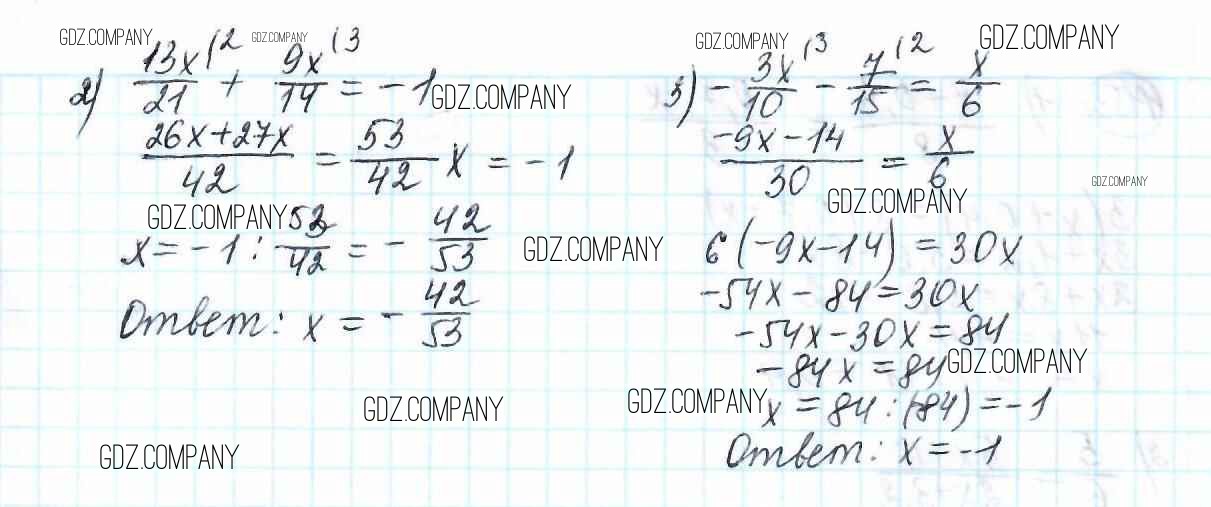 GDZ.COMPANY GDZ.COMPANY
2) 13x/21 (2 + 9x/14 (3 = -1 GDZ.COMPANY
(26x+27x)/42 = 53/42 x = -1
GDZ.COMPANY
x = -1 : 53/42 = - 42/53 GDZ.COMPANY
Ответ: x = - 42/53
GDZ.COMPANY
GDZ.COMPANY
GDZ.COMPANY GDZ.COMPANY
3) - 3x/10 (3 - 7/15 (2 = x/6
(-9x-14)/30 = x/6 GDZ.COMPANY
GDZ.COMPANY
6(-9x-14) = 30x
-54x-84=30x
-54x-30x=84
-84x=84 GDZ.COMPANY
GDZ.COMPANY x = 84:(-84)=-1
Ответ: x=-1